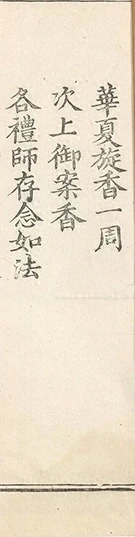 華夏旋香一周
次上御案香
各禮師存念如法